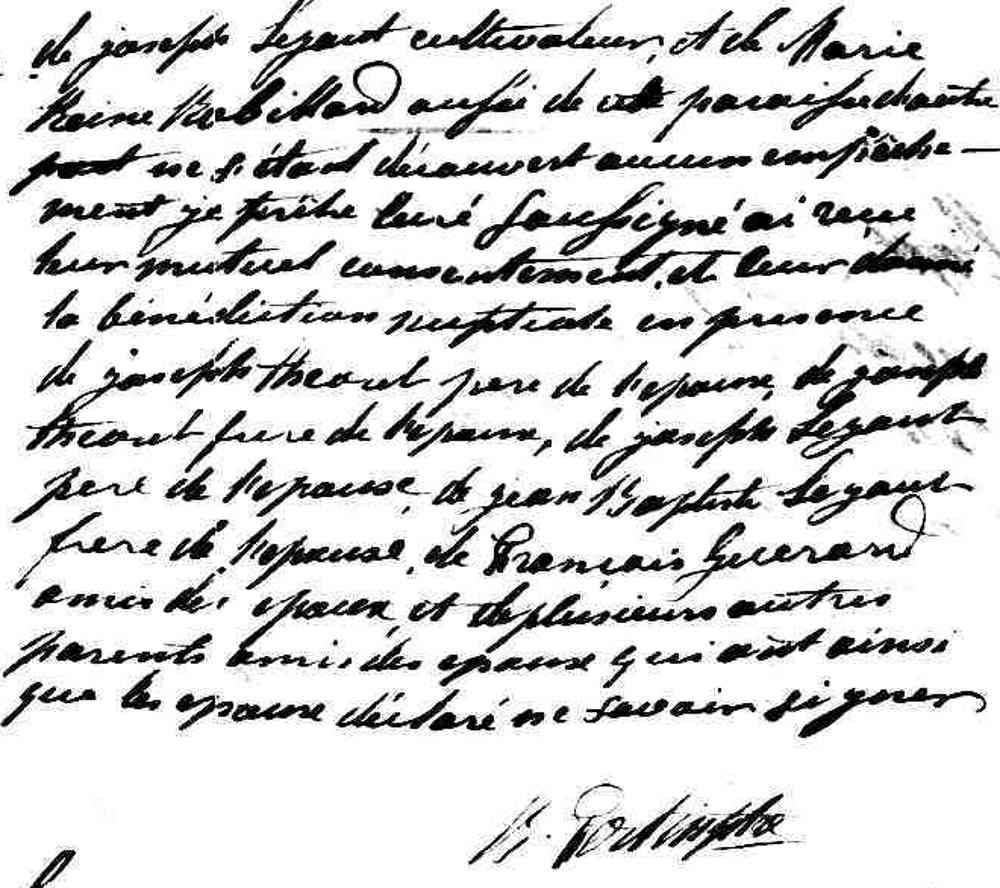 de joseph Legaut cultivateur, et de Marie
Reine Robillard aussi de cette paroisse d'autre
part ne s'étant découvert aucun empêche-
ment je prêtre Curé Soussigné ai reçu
leur mutuel consentement, et leur donné
la bénédiction nuptiale en presence
de joseph theoret pere de l'epoux, de joseph
theoret frere de l'epoux, de joseph Legaut
pere de l'epouse, de jean Baptiste Legaut
frere de l'epouse, de François Guerard
amis des epoux, et de plusieurs autres
parents amis des epoux qui ont ainsi
que les epoux déclaré ne savoir signer